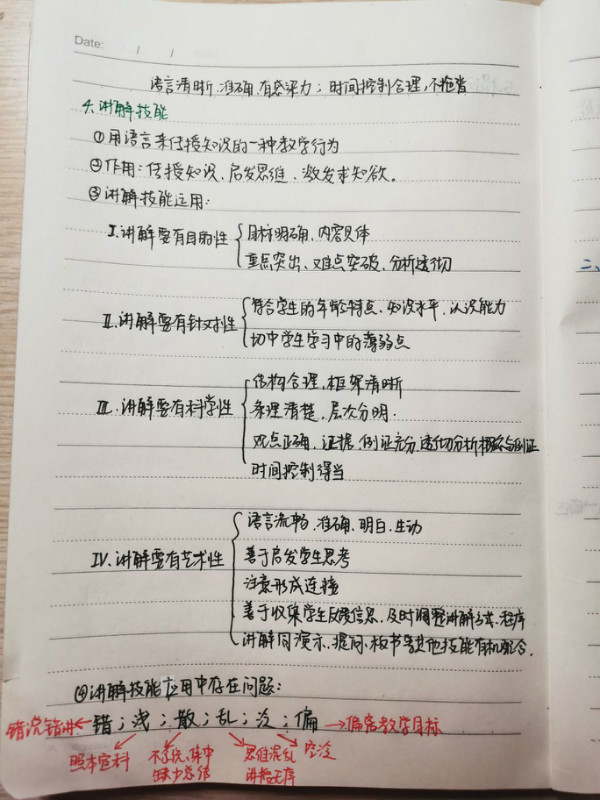 Date: / /
语言清晰、准确、有感染力；时间控制合理，不拖沓
4.讲解技能
①用语言来传授知识的一种教学行为
②作用：传授知识、启发思维、激发求知欲。
③讲解技能运用：
Ⅰ.讲解要有目的性
目标明确、内容具体
重点突出、难点突破、分析透彻
Ⅱ.讲解要有针对性
符合学生的年龄特点、知识水平、认识能力
切中学生学习中的薄弱点
Ⅲ.讲解要有科学性
结构合理，框架清晰
条理清楚、层次分明.
观点正确、证据、例证充分、透彻分析概念与例证
时间控制得当
Ⅳ.讲解要有艺术性
语言流畅、准确、明白、生动
善于启发学生思考
注意形成连接
善于收集学生反馈信息，及时调整讲解方式、程序
讲解同演示、提问、板书等其他技能有机配合.
④讲解技能应用中存在问题：
错误错讲←错；浅；散；乱；泛；偏→偏离教学目标
照本宣科 不系统、集中 思维混乱 空泛
缺少总结 讲授无序
二、